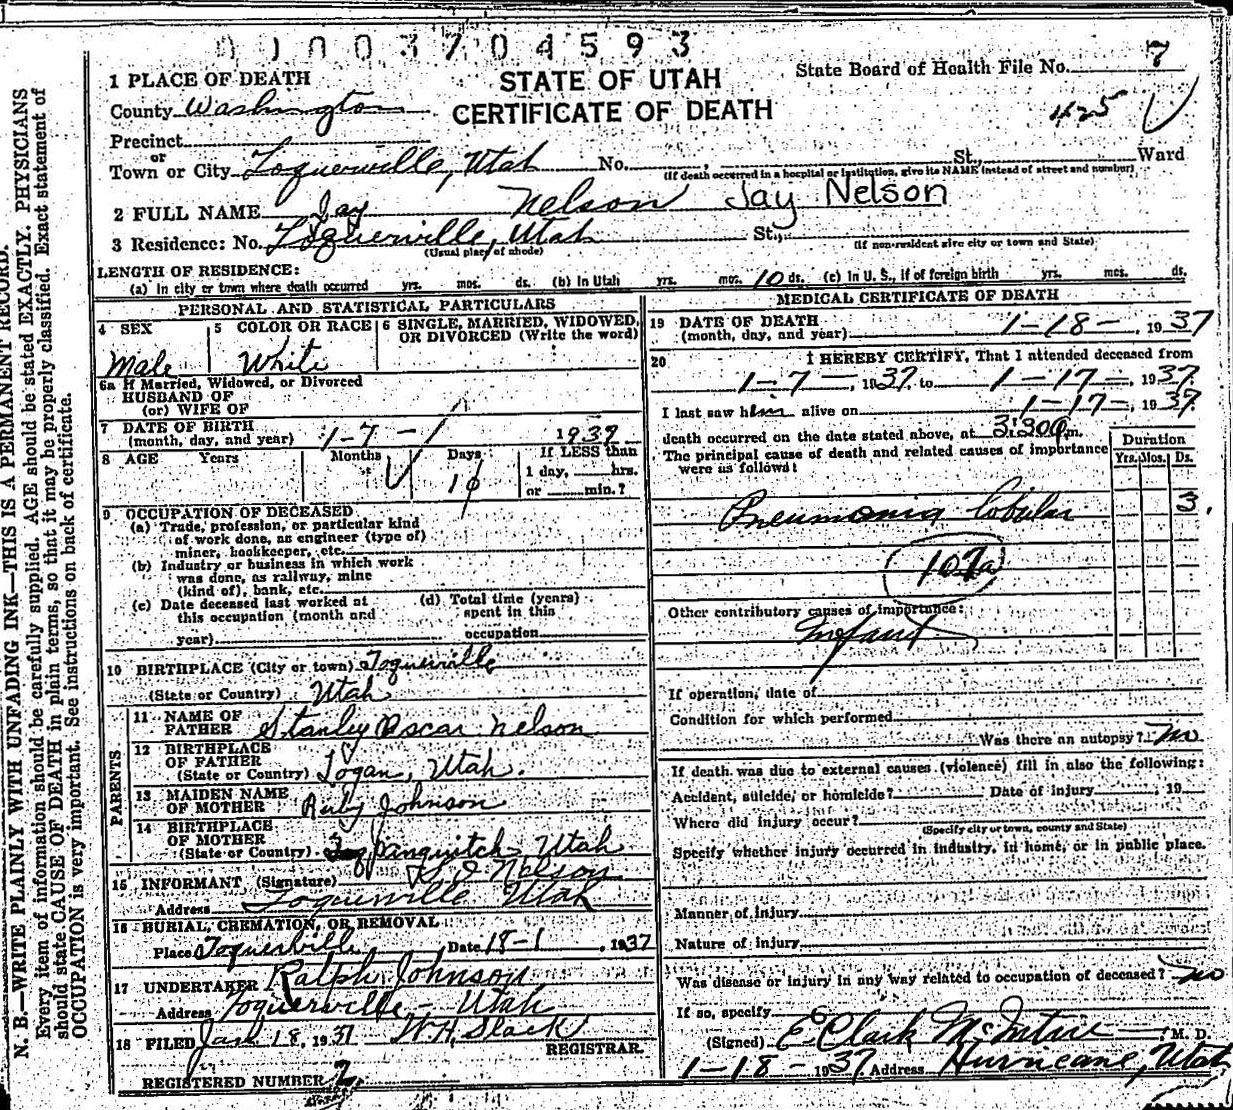 01003704593
1 PLACE OF DEATH
STATE OF UTAH
CERTIFICATE OF DEATH
State Board of Health File No. 7
425
County Washington
Precinct
or
Town or City Toquerville, Utah No. , St., Ward
(If death occurred in a hospital or institution, give its NAME instead of street and number)
2 FULL NAME Jay Nelson Jay Nelson
3 Residence: No. Toquerville, Utah St.,
(Usual place of abode) (If non-resident give city or town and State)
LENGTH OF RESIDENCE:
(a) In city or town where death occurred yrs. mos. ds. (b) In Utah yrs. mos. 10 ds. (c) In U. S., if of foreign birth yrs. mos. ds.
PERSONAL AND STATISTICAL PARTICULARS
4 SEX 5 COLOR OR RACE 6 SINGLE, MARRIED, WIDOWED,
OR DIVORCED (Write the word)
Male White
6a If Married, Widowed, or Divorced
HUSBAND OF
(or) WIFE OF
7 DATE OF BIRTH
(month, day, and year) 1-7-1 1937
8 AGE Years Months Days If LESS than
1 day, hrs.
or min.?
10
9 OCCUPATION OF DECEASED
(a) Trade, profession, or particular kind
of work done, as engineer (type of)
miner, bookkeeper, etc.
(b) Industry or business in which work
was done, as railway, mine
(kind of), bank, etc.
(c) Date deceased last worked at
this occupation (month and
year)
(d) Total time (years)
spent in this
occupation
10 BIRTHPLACE (City or town) Toquerville
(State or Country) Utah
PARENTS
11 NAME OF
FATHER Stanley Oscar Nelson
12 BIRTHPLACE
OF FATHER
(State or Country) Logan, Utah.
13 MAIDEN NAME
OF MOTHER Ruby Johnson
14 BIRTHPLACE
OF MOTHER
(State or Country) Panguitch Utah
15 INFORMANT (Signature) S. O. Nelson
Address Toquerville Utah
16 BURIAL, CREMATION, OR REMOVAL
Place Toquerville Date 18-1 1937
17 UNDERTAKER Ralph Johnson
Address Toquerville - Utah
18 FILED Jan 18, 1937 W. H. Slack
REGISTRAR.
REGISTERED NUMBER 2
MEDICAL CERTIFICATE OF DEATH
19 DATE OF DEATH
(month, day, and year) 1-18-, 1937
20 I HEREBY CERTIFY, That I attended deceased from
1-7-, 1937 to 1-17-, 1937
I last saw him alive on 1-17-, 1937
death occurred on the date stated above, at 3:30 m.
The principal cause of death and related causes of importance
were as follows:
Duration
Yrs. Mos. Ds.
Pneumonia lobular 3.
107a
Other contributory causes of importance:
Infant
If operation, date of
Condition for which performed
Was there an autopsy? no
If death was due to external causes (violence) fill in also the following:
Accident, suicide, or homicide? Date of injury , 19
Where did injury occur?
(Specify city or town, county and State)
Specify whether injury occurred in industry, in home, or in public place.
Manner of injury
Nature of injury
Was disease or injury in any way related to occupation of deceased? no
If so, specify
(Signed) E Clark McIntire M. D.
1-18-1937 Address Hurricane, Utah
N. B.—WRITE PLAINLY WITH UNFADING INK—THIS IS A PERMANENT RECORD.
Every item of information should be carefully supplied. AGE should be stated EXACTLY. PHYSICIANS
should state CAUSE OF DEATH in plain terms, so that it may be properly classified. Exact statement of
OCCUPATION is very important. See instructions on back of certificate.